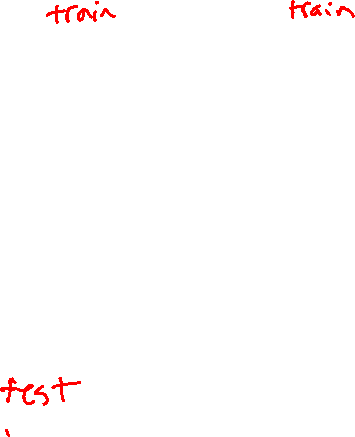 train train
test